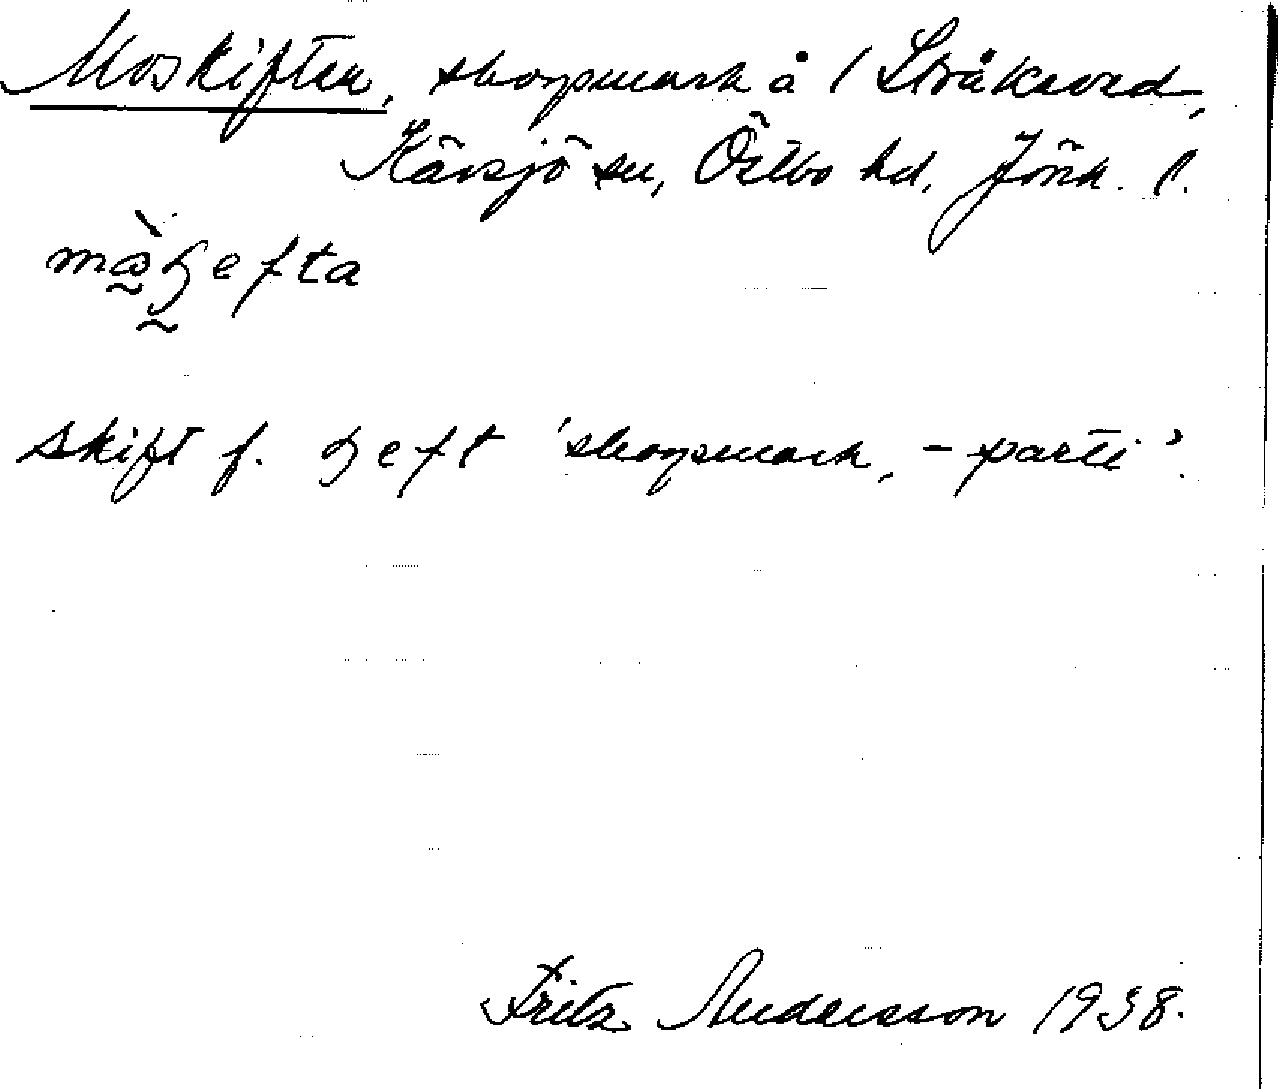 Moskiften, skogsmark å 1 Stråkeved,
Kävsjö sn, Östbo hd, Jönk. l.
skift f. ɧeft 'skogsmark, -parti'.
Fritz Andersson 1938.